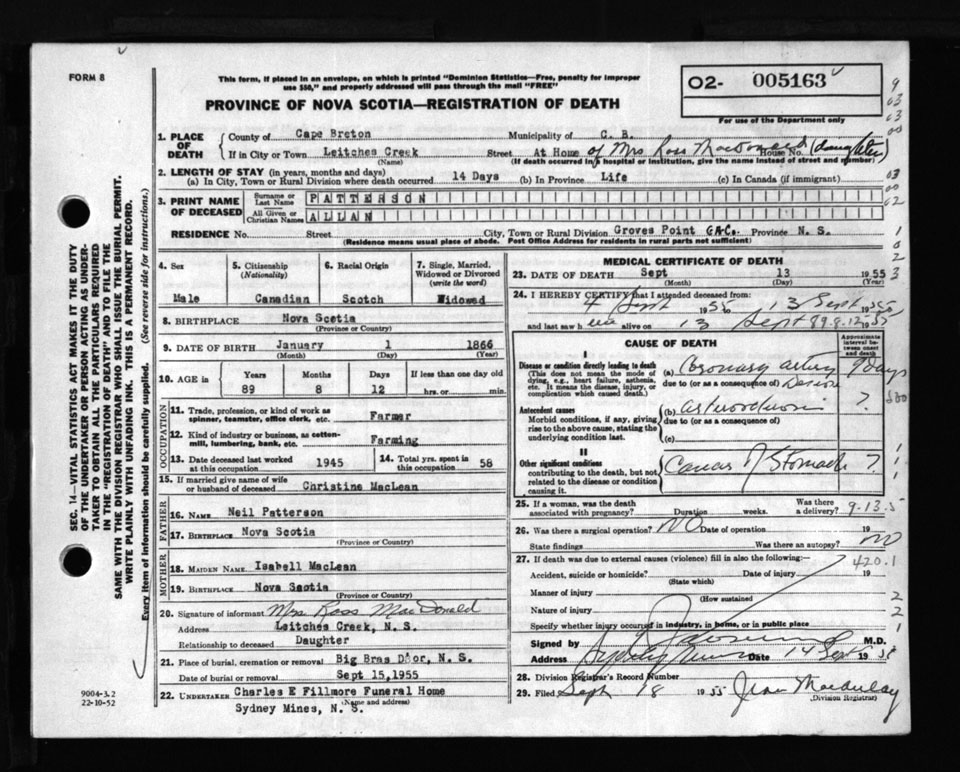 FORM 8
This form, if placed in an envelope, on which is printed "Dominion Statistics—Free, penalty for improper
use $50," and properly addressed will pass through the mail "FREE"
PROVINCE OF NOVA SCOTIA—REGISTRATION OF DEATH
02- 005163
For use of the Department only
1. PLACE OF DEATH County of Cape Breton Municipality of C. B.
If in City or Town Leitches Creek Street At Home of Mrs Ross MacDonald House No. (daughter)
(Name) (If death occurred in a hospital or institution, give the name instead of street and number)
2. LENGTH OF STAY (in years, months and days)
(a) In City, Town or Rural Division where death occurred 14 Days (b) In Province Life (c) In Canada (if immigrant)
3. PRINT NAME OF DECEASED Surname or Last Name PATTERSON
All Given or Christian Names ALLAN
RESIDENCE No. Street City, Town or Rural Division Groves Point Province N. S.
(Residence means usual place of abode. Post Office Address for residents in rural parts not sufficient)
4. Sex Male
5. Citizenship (Nationality) Canadian
6. Racial Origin Scotch
7. Single, Married, Widowed or Divorced (write the word) Widowed
8. BIRTHPLACE Nova Scotia
(Province or Country)
9. DATE OF BIRTH January 1 1866
(Month) (Day) (Year)
10. AGE in Years Months Days If less than one day old
89 8 12 hrs. or min.
OCCUPATION
11. Trade, profession, or kind of work as spinner, teamster, office clerk, etc. Farmer
12. Kind of industry or business, as cotton-mill, lumbering, bank, etc. Farming
13. Date deceased last worked at this occupation 1945
14. Total yrs. spent in this occupation 58
15. If married give name of wife or husband of deceased Christine MacLean
FATHER
16. NAME Neil Patterson
17. BIRTHPLACE Nova Scotia
(Province or Country)
MOTHER
18. MAIDEN NAME Isabell MacLean
19. BIRTHPLACE Nova Scotia
(Province or Country)
20. Signature of informant Mrs Ross MacDonald
Address Leitches Creek, N. S.
Relationship to deceased Daughter
21. Place of burial, cremation or removal Big Bras D'or, N. S.
Date of burial or removal Sept 15,1955
22. UNDERTAKER Charles E Fillmore Funeral Home
(Name and address)
Sydney Mines, N. S.
MEDICAL CERTIFICATE OF DEATH
23. DATE OF DEATH Sept 13 1955
(Month) (Day) (Year)
24. I HEREBY CERTIFY that I attended deceased from:
4 Sept 1955 to 13 Sept 1955
and last saw h alive on 13 Sept 1955
89.8.12
CAUSE OF DEATH
Approximate interval between onset and death
I
Disease or condition directly leading to death (a) Coronary artery Disease 9 Days
(This does not mean the mode of dying, e.g., heart failure, asthenia, etc. It means the disease, injury, or complication which caused death.)
due to (or as a consequence of)
Antecedent causes
Morbid conditions, if any, giving rise to the above cause, stating the underlying condition last.
(b) ?
due to (or as a consequence of)
(c)
II
Other significant conditions
contributing to the death, but not related to the disease or condition causing it.
Cancer of Stomach ?
25. If a woman, was the death associated with pregnancy? Duration weeks. Was there a delivery?
9-13-5
26. Was there a surgical operation? NO Date of operation 19
State findings Was there an autopsy? NO
27. If death was due to external causes (violence) fill in also the following:—
420.1
Accident, suicide or homicide? Date of injury 19
(State which)
Manner of injury
(How sustained
Nature of injury
Specify whether injury occurred in industry, in home, or in public place
Signed by M.D.
Address Sydney Mines Date 14 Sept 1955
28. Division Registrar's Record Number
29. Filed Sept 18 1955 Jean Macaulay
(Division Registrar)
SEC. 14—VITAL STATISTICS ACT MAKES IT THE DUTY
OF THE UNDERTAKER OR PERSON ACTING AS UNDER-
TAKER TO OBTAIN ALL THE PARTICULARS REQUIRED
IN THE "REGISTRATION OF DEATH" AND TO FILE THE
SAME WITH THE DIVISION REGISTRAR WHO SHALL ISSUE THE BURIAL PERMIT.
WRITE PLAINLY WITH UNFADING INK. THIS IS A PERMANENT RECORD.
Every item of information should be carefully supplied. (See reverse side for instructions.)
9004-3.2
22-10-52